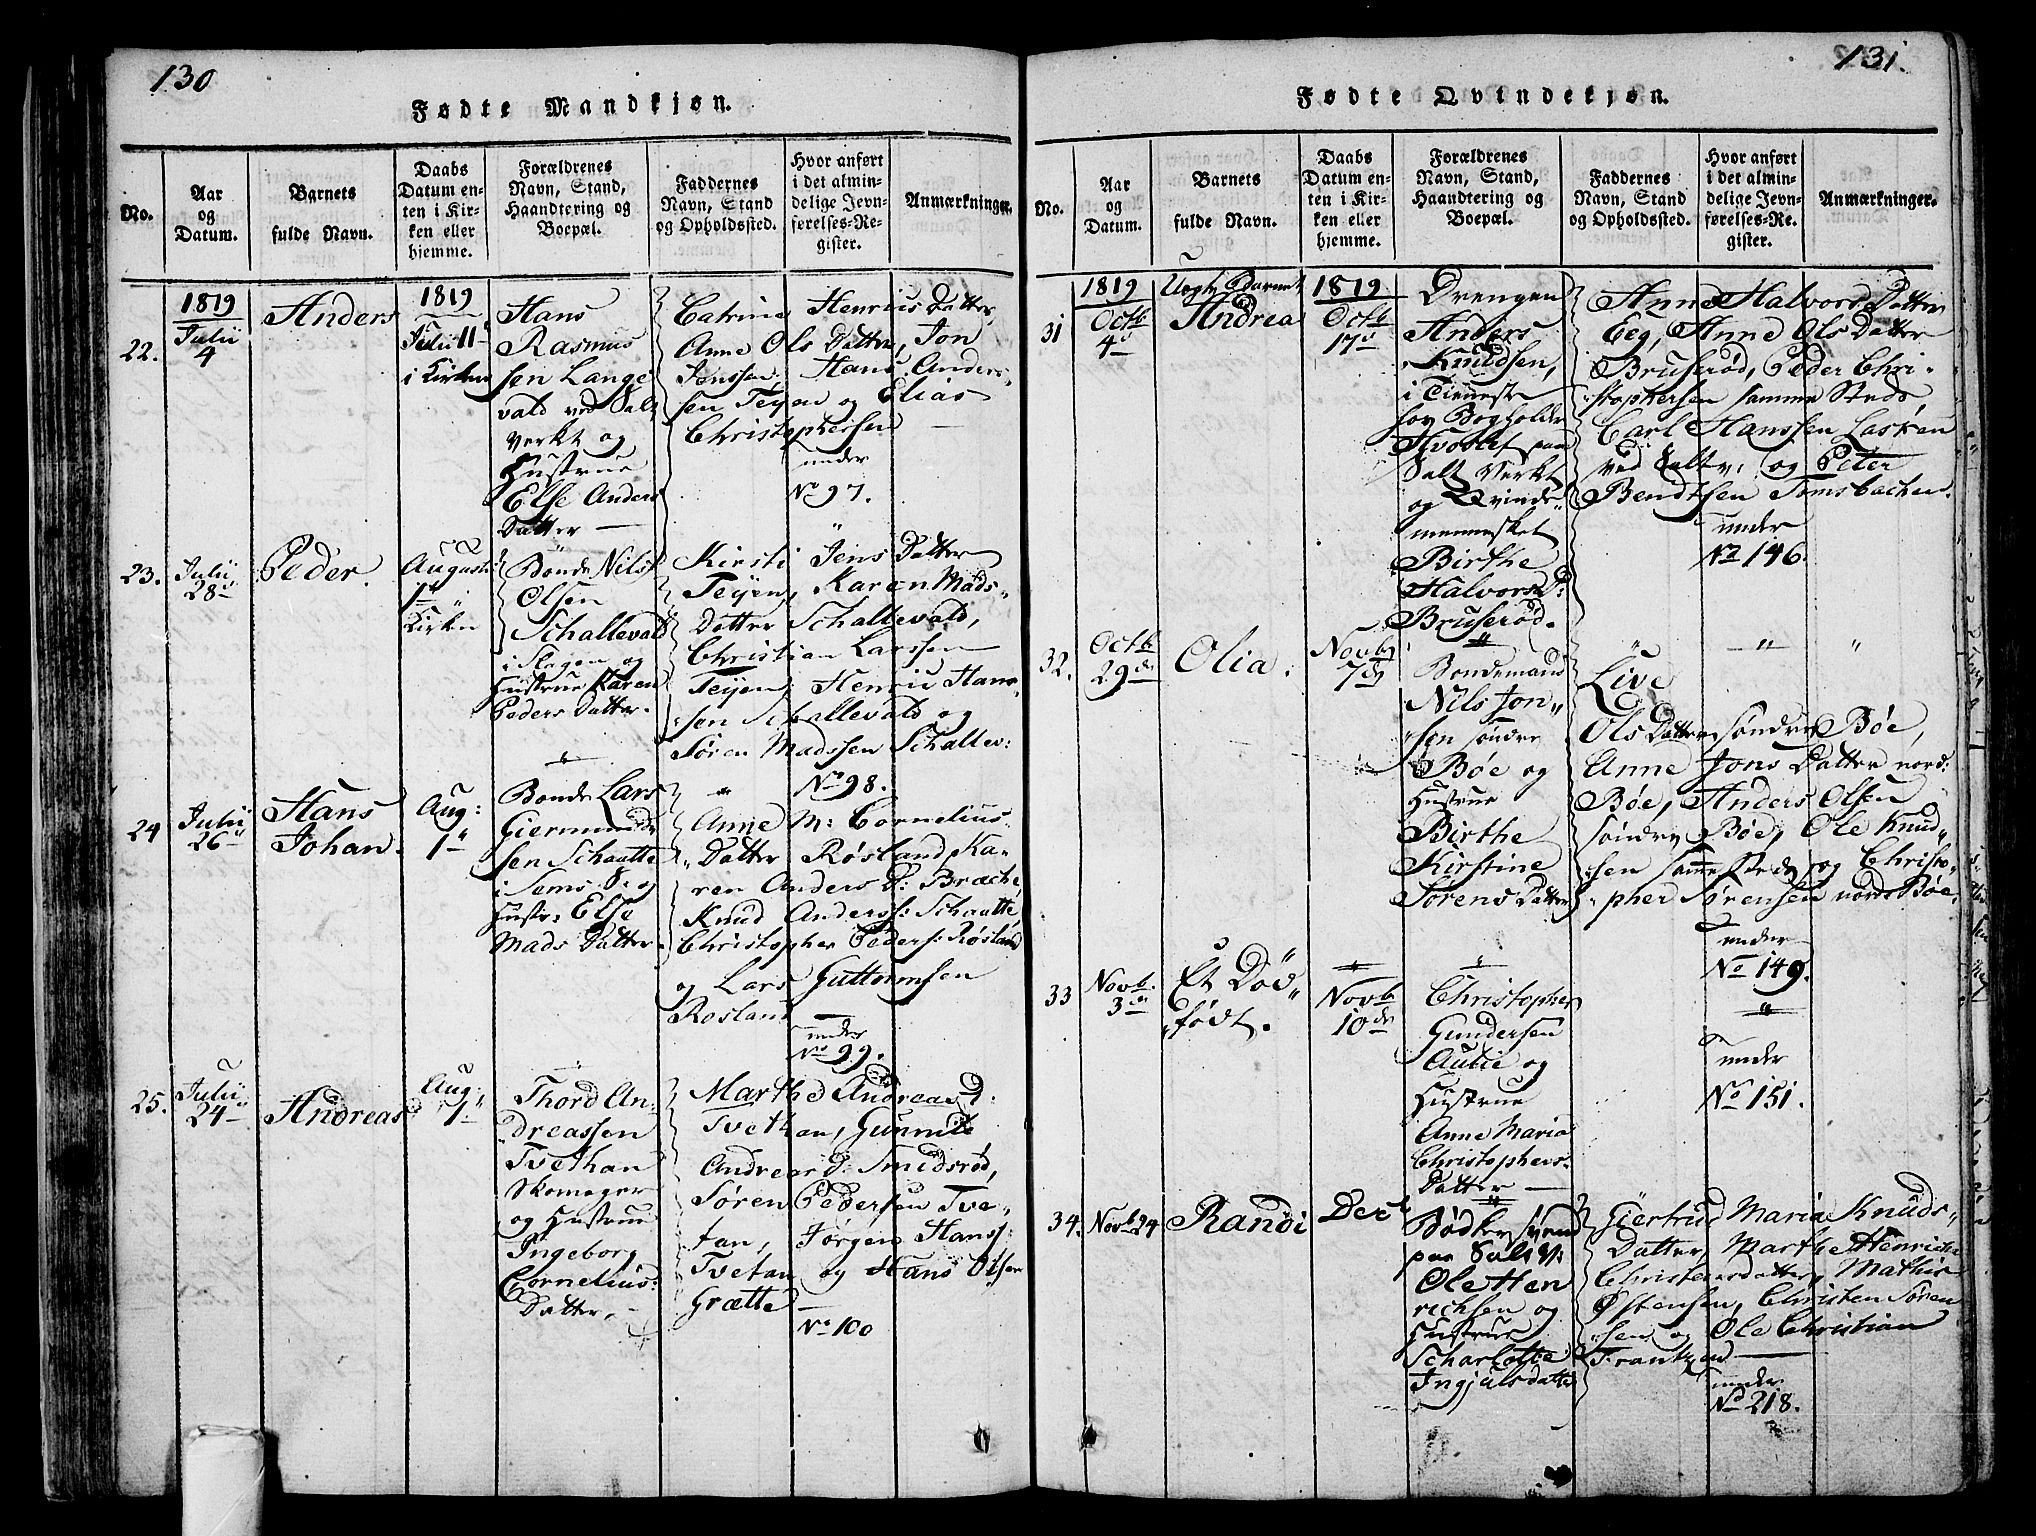 130
Fødte Mandkjøn.
No.
Aar
og
Datum.
Barnets
fulde Navn.
Daabs
Datum en-
ten i Kir-
ken eller
hjemme.
Forældrenes
Navn, Stand,
Haandtering og
Boepæl.
Faddernes
Navn, Stand
og Opholdssted.
Hvor anført
i det almin-
delige Jevn-
førelses-Re-
gister.
Anmærkninger.
22.
1819
Julii
4
Anders
1819
Julii 11
i Kirken
Hans
Rasmus
sen Lange
vald ved Salt
verkt og
Hustrue
Else Anders
Datter
Catrine Henrius Datter,
Anne Ols Datter, Jon
Jenssen, Hans Anders-
sen Teyen og Elias
Christophersen
under
No 97.
23.
Julii
28
Peder.
Augusti
1
Kirken
Bonde Nils
Olsen
Schallevald
i Slagen og
Hustrue Karen
Peders Datter.
Kirsti Jens Datter
Teyen, Karen Mads-
Datter Schallevald,
Christian Larssen
Teyen, Henric Hans-
sen Schallevald og
Søren Madssen Schallev:
No 98.
24
Julii
26
Hans
Johan.
Aug:
1
Bonde Lars
Giermunds
sen Schautte
i Sems S. og
Hustr: Else
Mads Datter.
Anne M: Cornelius
Datter Røsland, Ka-
ren Anders D: Bræche,
Knud Anderss: Schautte,
Christopher Peders: Røsland
og Lars Guttormsen
Rosland
under
No 99.
25.
Julii
24
Andreas
Aug:
1
Thord An-
dreassen
Tvethan
Skomager
og Hustrue
Ingeborg
Cornelius
Datter.
Marthe Andreas D:
Tvethan, Gunnild
Andreas D: Smidsrød,
Søren Pedersen Tve-
tan, Jørgen Hanss:
Tvetan og Hans Olsen
Grætte
No 100
131.
Fødte Qvindekjøn.
No.
Aar
og
Datum.
Barnets
fulde Navn.
Daabs
Datum en-
ten i Kir-
ken eller
hjemme.
Forældrenes
Navn, Stand,
Haandtering og
Boepæl.
Faddernes
Navn, Stand
og Opholdssted.
Hvor anført
i det almin-
delige Jevn-
førelses-Re-
gister.
Anmærkninger.
31
1819
Octb
4
Uægte Barnet
Andrea
1819
Octb
17
Drengen
Anders
Knudsen,
i Tieneste
hos Bogholder
paa
Salt Verkt
og Qvinde-
mennesket
Birthe
Halvors D:
Bruserød.
Anne Halvors Datter
Eeg, Anne Ols Datter
Bruserød, Peder Chri-
stophersen samme Steds,
Carl Hanssen Lastein
ved Saltv: og Peter
Bendtsen Tomsbachen.
under
No 146.
32.
Octb
29de
Olia.
Novb
7de
Bondemand
Nils Jon-
sen søndre
Bøe og
Hustrue
Birthe
Kirstine
Sørens Datter
Live
Ols Datter søndre Bøe,
Anne Jons Datter nord:
Bøe, Anders Olsen
søndre Bøe, Ole Knud-
sen samme Sted og Christo-
pher Sørensen nordr Bøe.
under
No 149.
33
Novb.
3de
Et Død-
født.
Novb
10de
Christopher
Gundersen
Aulie og
Hustrue
Anne Maria
Christophers-
Datter
under
No 151.
34.
Novb 24
Randi
Decb
Bødkersvend
paa Salt V:
Ole Hen
richsen og
Hustrue
Scharlotte
Ingjalsdatter
Giertrud Maria Knuds-
Datter, Marthe Henriche
Christensdatter, Mathis
Østensen, Christen Søren
sen og Ole Christian
Frantzen
under
No 218.